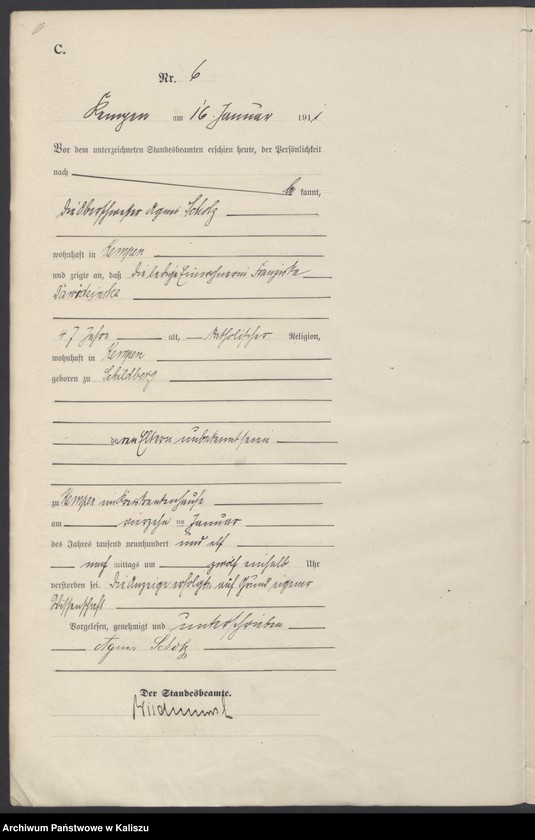 C.
Nr. 6
Kempen am 16. Januar 1911
Vor dem unterzeichneten Standesbeamten erschien heute, der Persönlichkeit
nach
be kannt,
die Oberschwester Agnes Scholz
wohnhaft in Kempen
und zeigte an, daß die ledige Einwohnerin Franziska
47 Jahre alt, katholischer Religion,
wohnhaft in Kempen
geboren zu Schildberg
deren Eltern unbekannt sein
zu Kempen im Kreiskrankenhause
am vierzehn ten Januar
des Jahres tausend neunhundert und elf
nach mittags um zwölf einhalb Uhr
verstorben sei. Die Anzeige erfolgte auf Grund eigener
Wissenschaft
Vorgelesen, genehmigt und unterschrieben
Agnes Scholz
Der Standesbeamte.
Archiwum Państwowe w Kaliszu